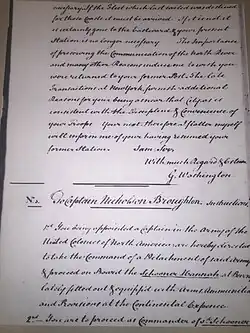 necessary. If the Fleet which sailed was destined
for those Coasts it must be arrived. If it is not it
is certainly gone to the Eastward & your present
Station is no longer necessary. The Importance
of preserving the Communication of the North River
and many other Reasons induce me to wish you
were returned to your former Post. The late
Transactions at New York furnish additional
Reasons for your being as near that City as is
consistent with the Discipline & Convenience of
your Troops. Your next therefore I flatter myself
will inform me of your having resumed your
former Station. I am Sir
With much Regard & Esteem
G. Washington
No.
To Captain Nicholson Broughton, Instructions
1st You being appointed a Captain in the Army of the
United Colonies of North America, are hereby directed
to take the Command of a Detachment of said Army
& proceed on Board the Schooner Hannah at Beverly
lately fitted out & equipped with Arms Ammunition
and Provisions at the Continental Expence.
2nd You are to proceed as Commander of sd. Schooner